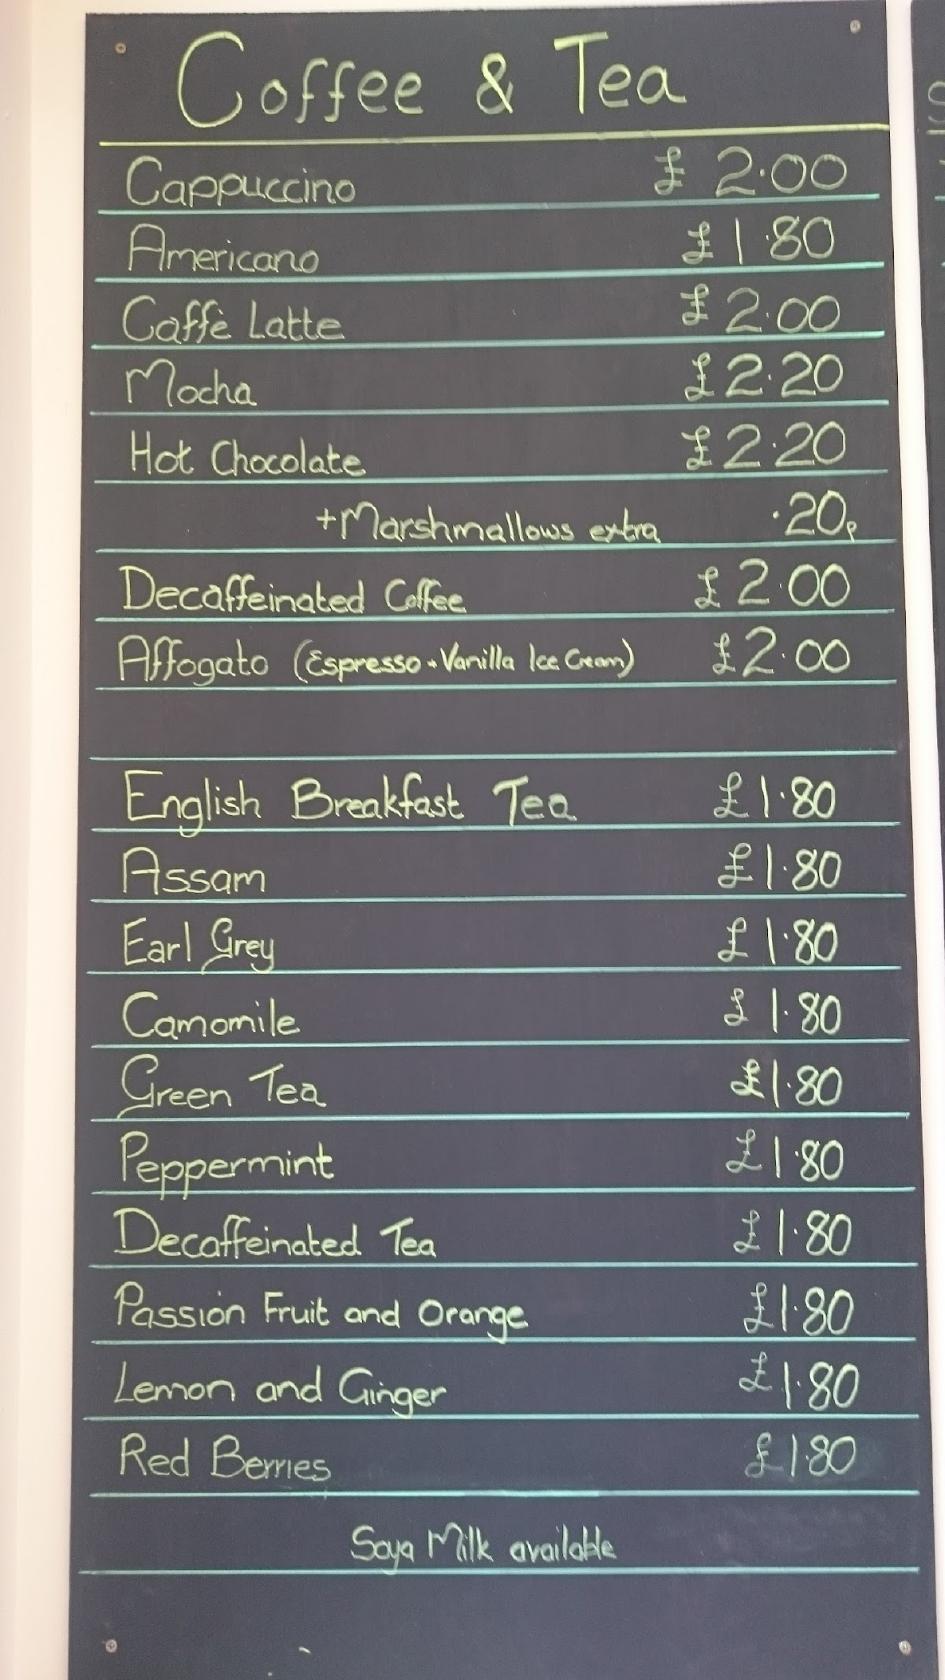 Coffee & Tea
Cappuccino £ 2.00
Americano £1.80
Caffè Latte £2.00
Mocha £2.20
Hot Chocolate £2.20
+Marshmallows extra .20p
Decaffeinated Coffee £2.00
Affogato (Espresso + Vanilla Ice Cream) £2.00
English Breakfast Tea £1.80
Assam £1.80
Earl Grey £1.80
Camomile £1.80
Green Tea £1.80
Peppermint £1.80
Decaffeinated Tea £1.80
Passion Fruit and Orange £1.80
Lemon and Ginger £1.80
Red Berries £1.80
Soya Milk available